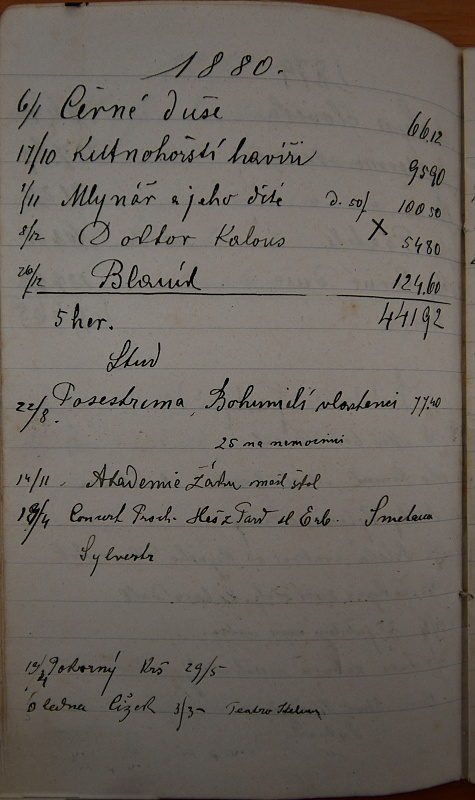 1880.
6/1 Černé duše 66.12
17/10 Kutnohorští havíři 95 90
1/11 Mlynář a jeho dítě d. 50/ 100 50
8/12 Doktor Kalous X 54 80
26/12 Blaník 124.60
5 her. 441 92
Stud
22/8. Posestrima, Bohumilí vlastenci 77.40
25 na nemocnici
14/11. Akademie Žáků
Concert Proch. Smetana
Sylvestr
Pokorný Krš 29/5
ledna Čížek 3/3- Teatro